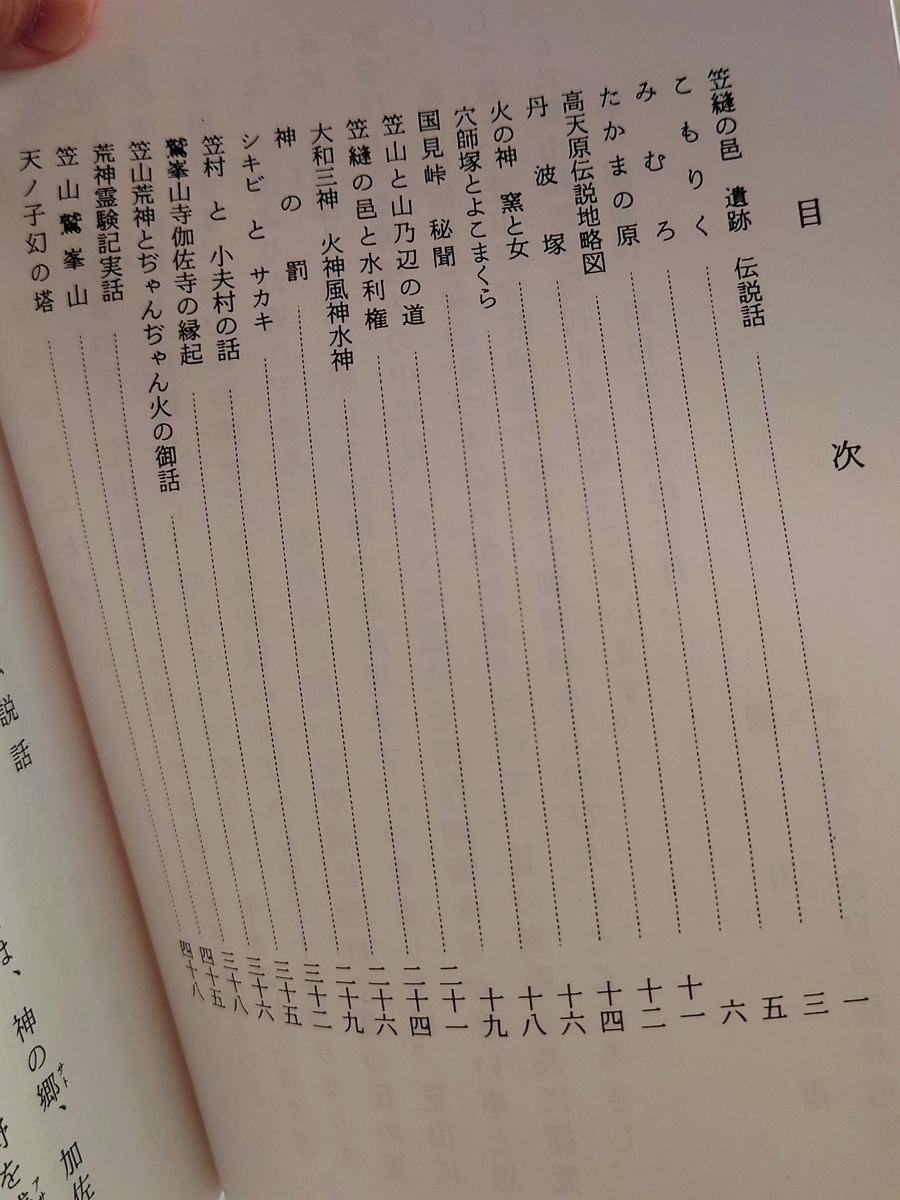 目次
笠縫の邑 遺跡 伝説話 一
こもりく 三
みむろ 五
たかまの原 六
高天原伝説地略図 十一
丹波塚 十二
火の神 窯と女 十四
穴師塚とよこまくら 十六
国見峠 秘聞 十八
笠山と山乃辺の道 十九
笠縫の邑と水利権 二十一
大和三神 火神風神水神 二十四
神の罰 二十六
シキビとサカキ 二十九
笠村と 小夫村の話 三十二
鷲峯山寺伽佐寺の縁起 三十五
笠山荒神とぢゃんぢゃん火の御話 三十六
荒神霊験記実話 三十八
笠山鷲峯山 四十五
天ノ子幻の塔 四十八
説話
は、神の郷、加佐